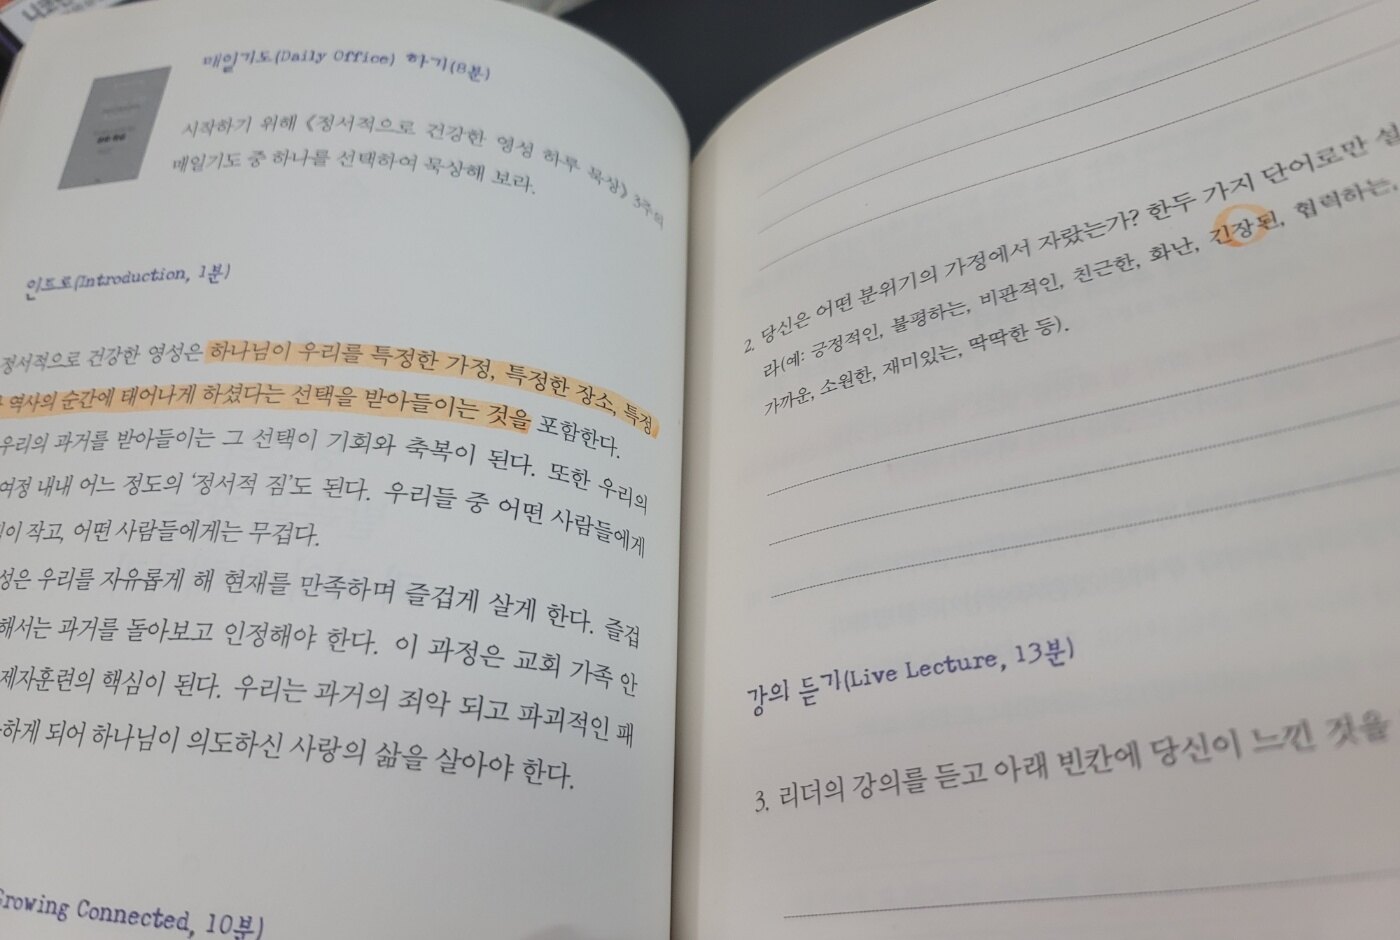 매일기도(Daily Office) 하기(8분)
시작하기 위해 《정서적으로 건강한 영성 하루 묵상》 3주의
매일기도 중 하나를 선택하여 묵상해 보라.
인트로(Introduction, 1분)
정서적으로 건강한 영성은 하나님이 우리를 특정한 가정, 특정한 장소, 특정
역사의 순간에 태어나게 하셨다는 선택을 받아들이는 것을 포함한다.
우리의 과거를 받아들이는 그 선택이 기회와 축복이 된다. 또한 우리의
여정 내내 어느 정도의 '정서적 짐'도 된다. 우리들 중 어떤 사람들에게
작고, 어떤 사람들에게는 무겁다.
우리를 자유롭게 해 현재를 만족하며 즐겁게 살게 한다. 즐겁
해서는 과거를 돌아보고 인정해야 한다. 이 과정은 교회 가족 안
제자훈련의 핵심이 된다. 우리는 과거의 죄악 되고 파괴적인 패
하게 되어 하나님이 의도하신 사랑의 삶을 살아야 한다.
Growing Connected, 10분)
2. 당신은 어떤 분위기의 가정에서 자랐는가? 한두 가지 단어로만 설
라(예: 긍정적인, 불평하는, 비판적인, 친근한, 화난, 긴장된, 협력하는,
가까운, 소원한, 재미있는, 딱딱한 등).
강의 듣기(Live Lecture, 13분)
3. 리더의 강의를 듣고 아래 빈칸에 당신이 느낀 것을